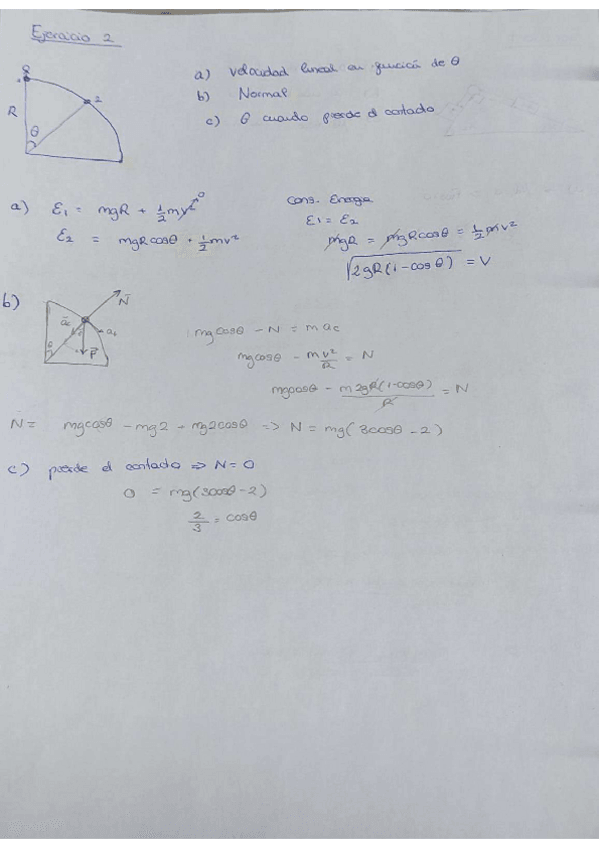 Ejercicio 2
a) velocidad lineal en función de θ
b) Normal
c) θ cuando pierde el contacto
R
θ
2
a) E₁ = mgR + ½mv² 0
E₂ = mgRcosθ + ½mv²
Cons. Energia
E₁ = E₂
mgR = mgRcosθ = ½mv²
√2gR(1-cosθ) = V
b)
N
P
θ
mgcosθ - N = mac
mgcosθ - mv²/R = N
mgcosθ - m2gR(1-cosθ)/R = N
N = mgcosθ - mg2 + mg2cosθ => N = mg(3cosθ - 2)
c) pierde el contacto => N = 0
0 = mg(3cosθ - 2)
2/3 = cosθ